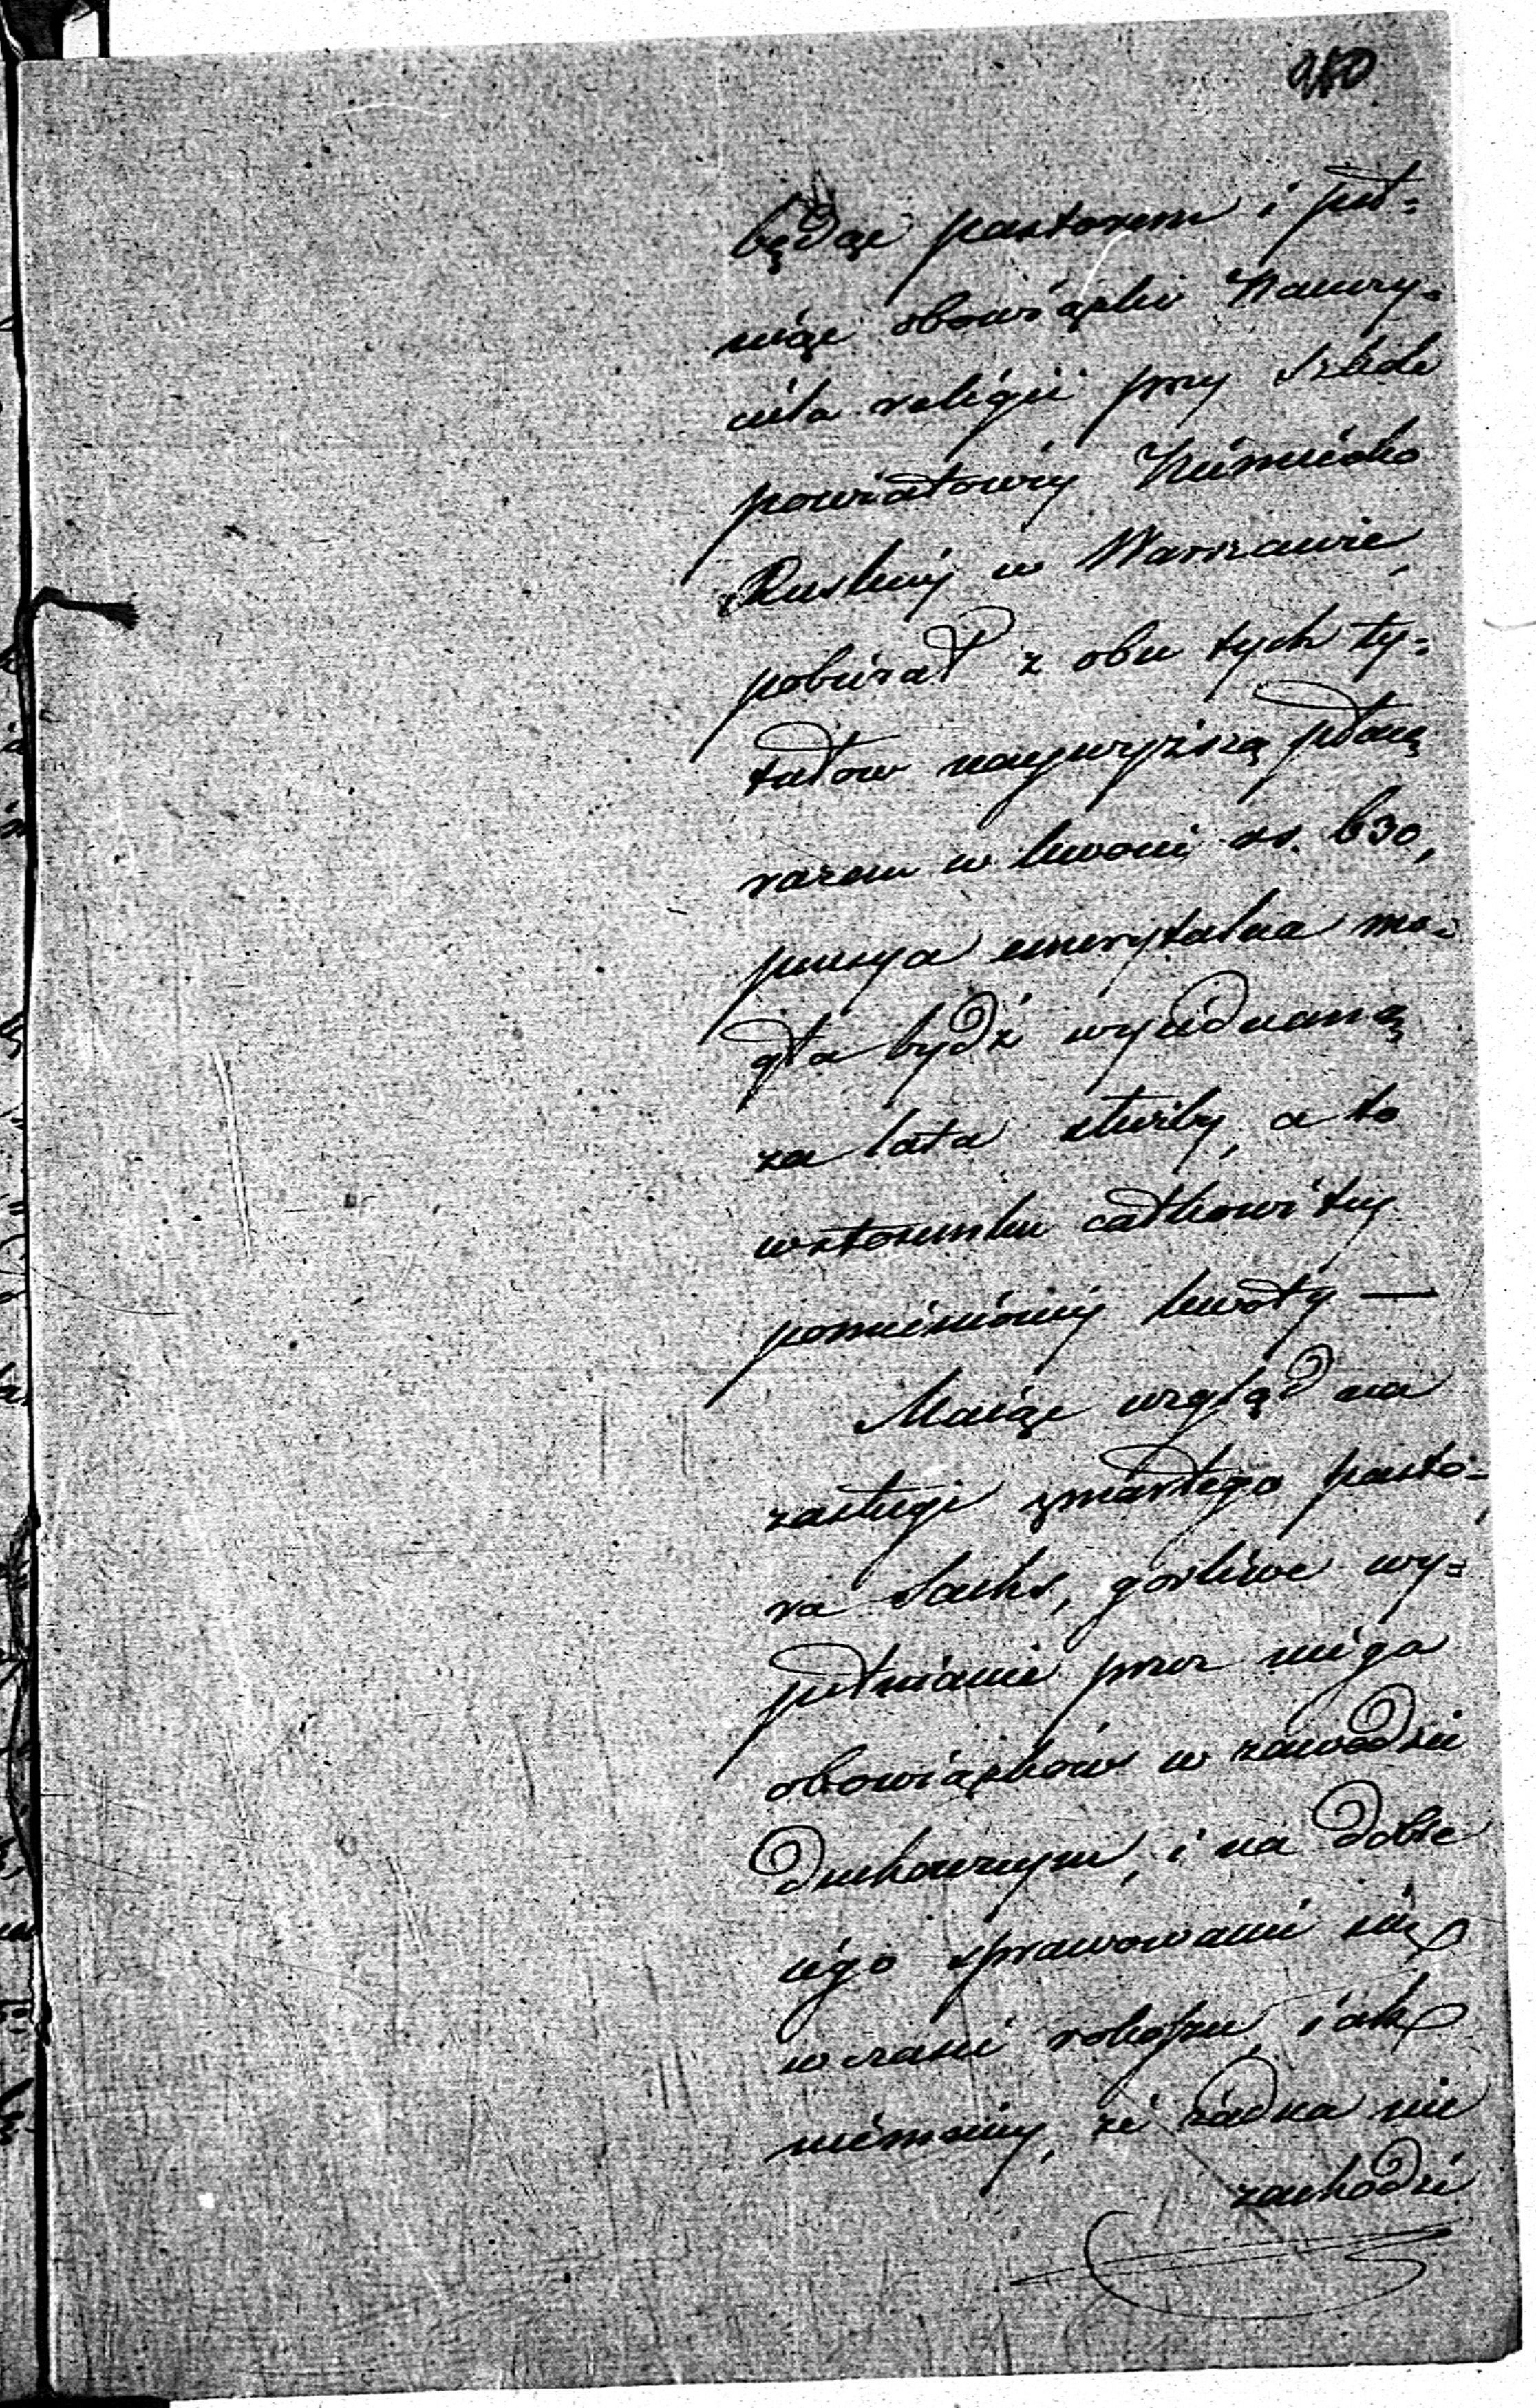 będąc pastorem i peł=
niąc obowiązki Nauczy=
ciela religii przy Szkole
powiatowéy Niemiecko
Ruskiéy w Warszawie,
pobierał z obu tych ty=
tułów naywyższą płacę
razem w kwocie rs. 630,
pensya emerytalna mo=
gła bydź wyiednaną
za lata służby, a to
w stosunku całkowitéy
pomienionéy kwoty —
Maiąc wzgląd na
zasługi zmarłego pasto=
ra Sachs, gorliwe wy=
pełnianie przez niego
obowiązków w zawodzie
duchownym, i na dobre
iego sprawowanie się
w czasie rokoszu, iak
niemniéy, że żadna nie
zachodzi